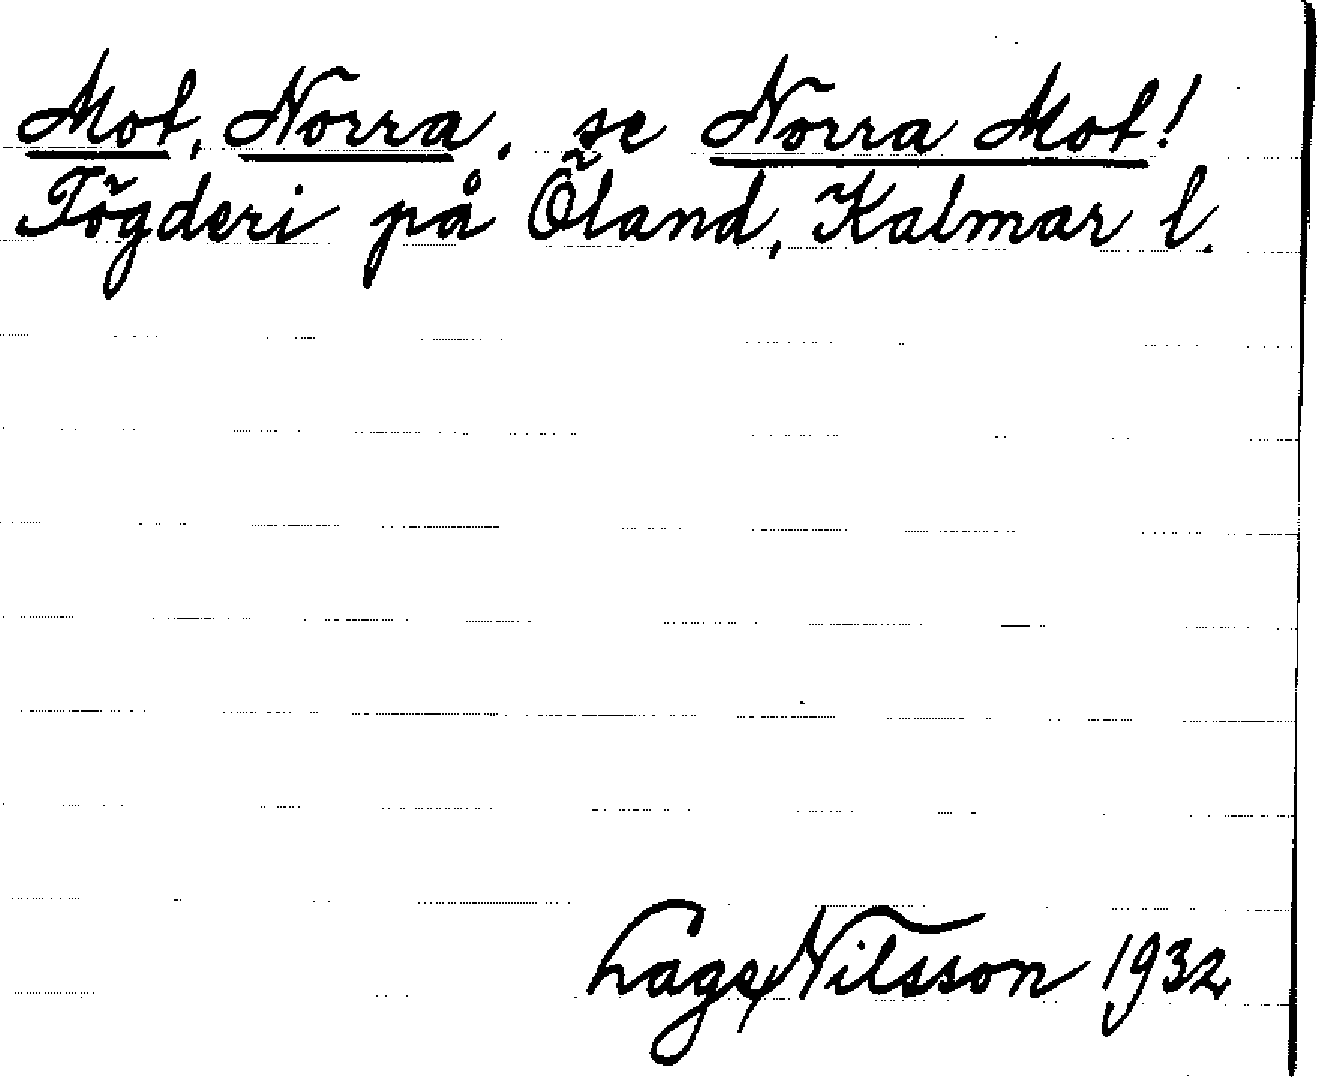 Mot, Norra, se Norra Mot!
Fögderi på Öland, Kalmar l.
Lage Nilsson 1932